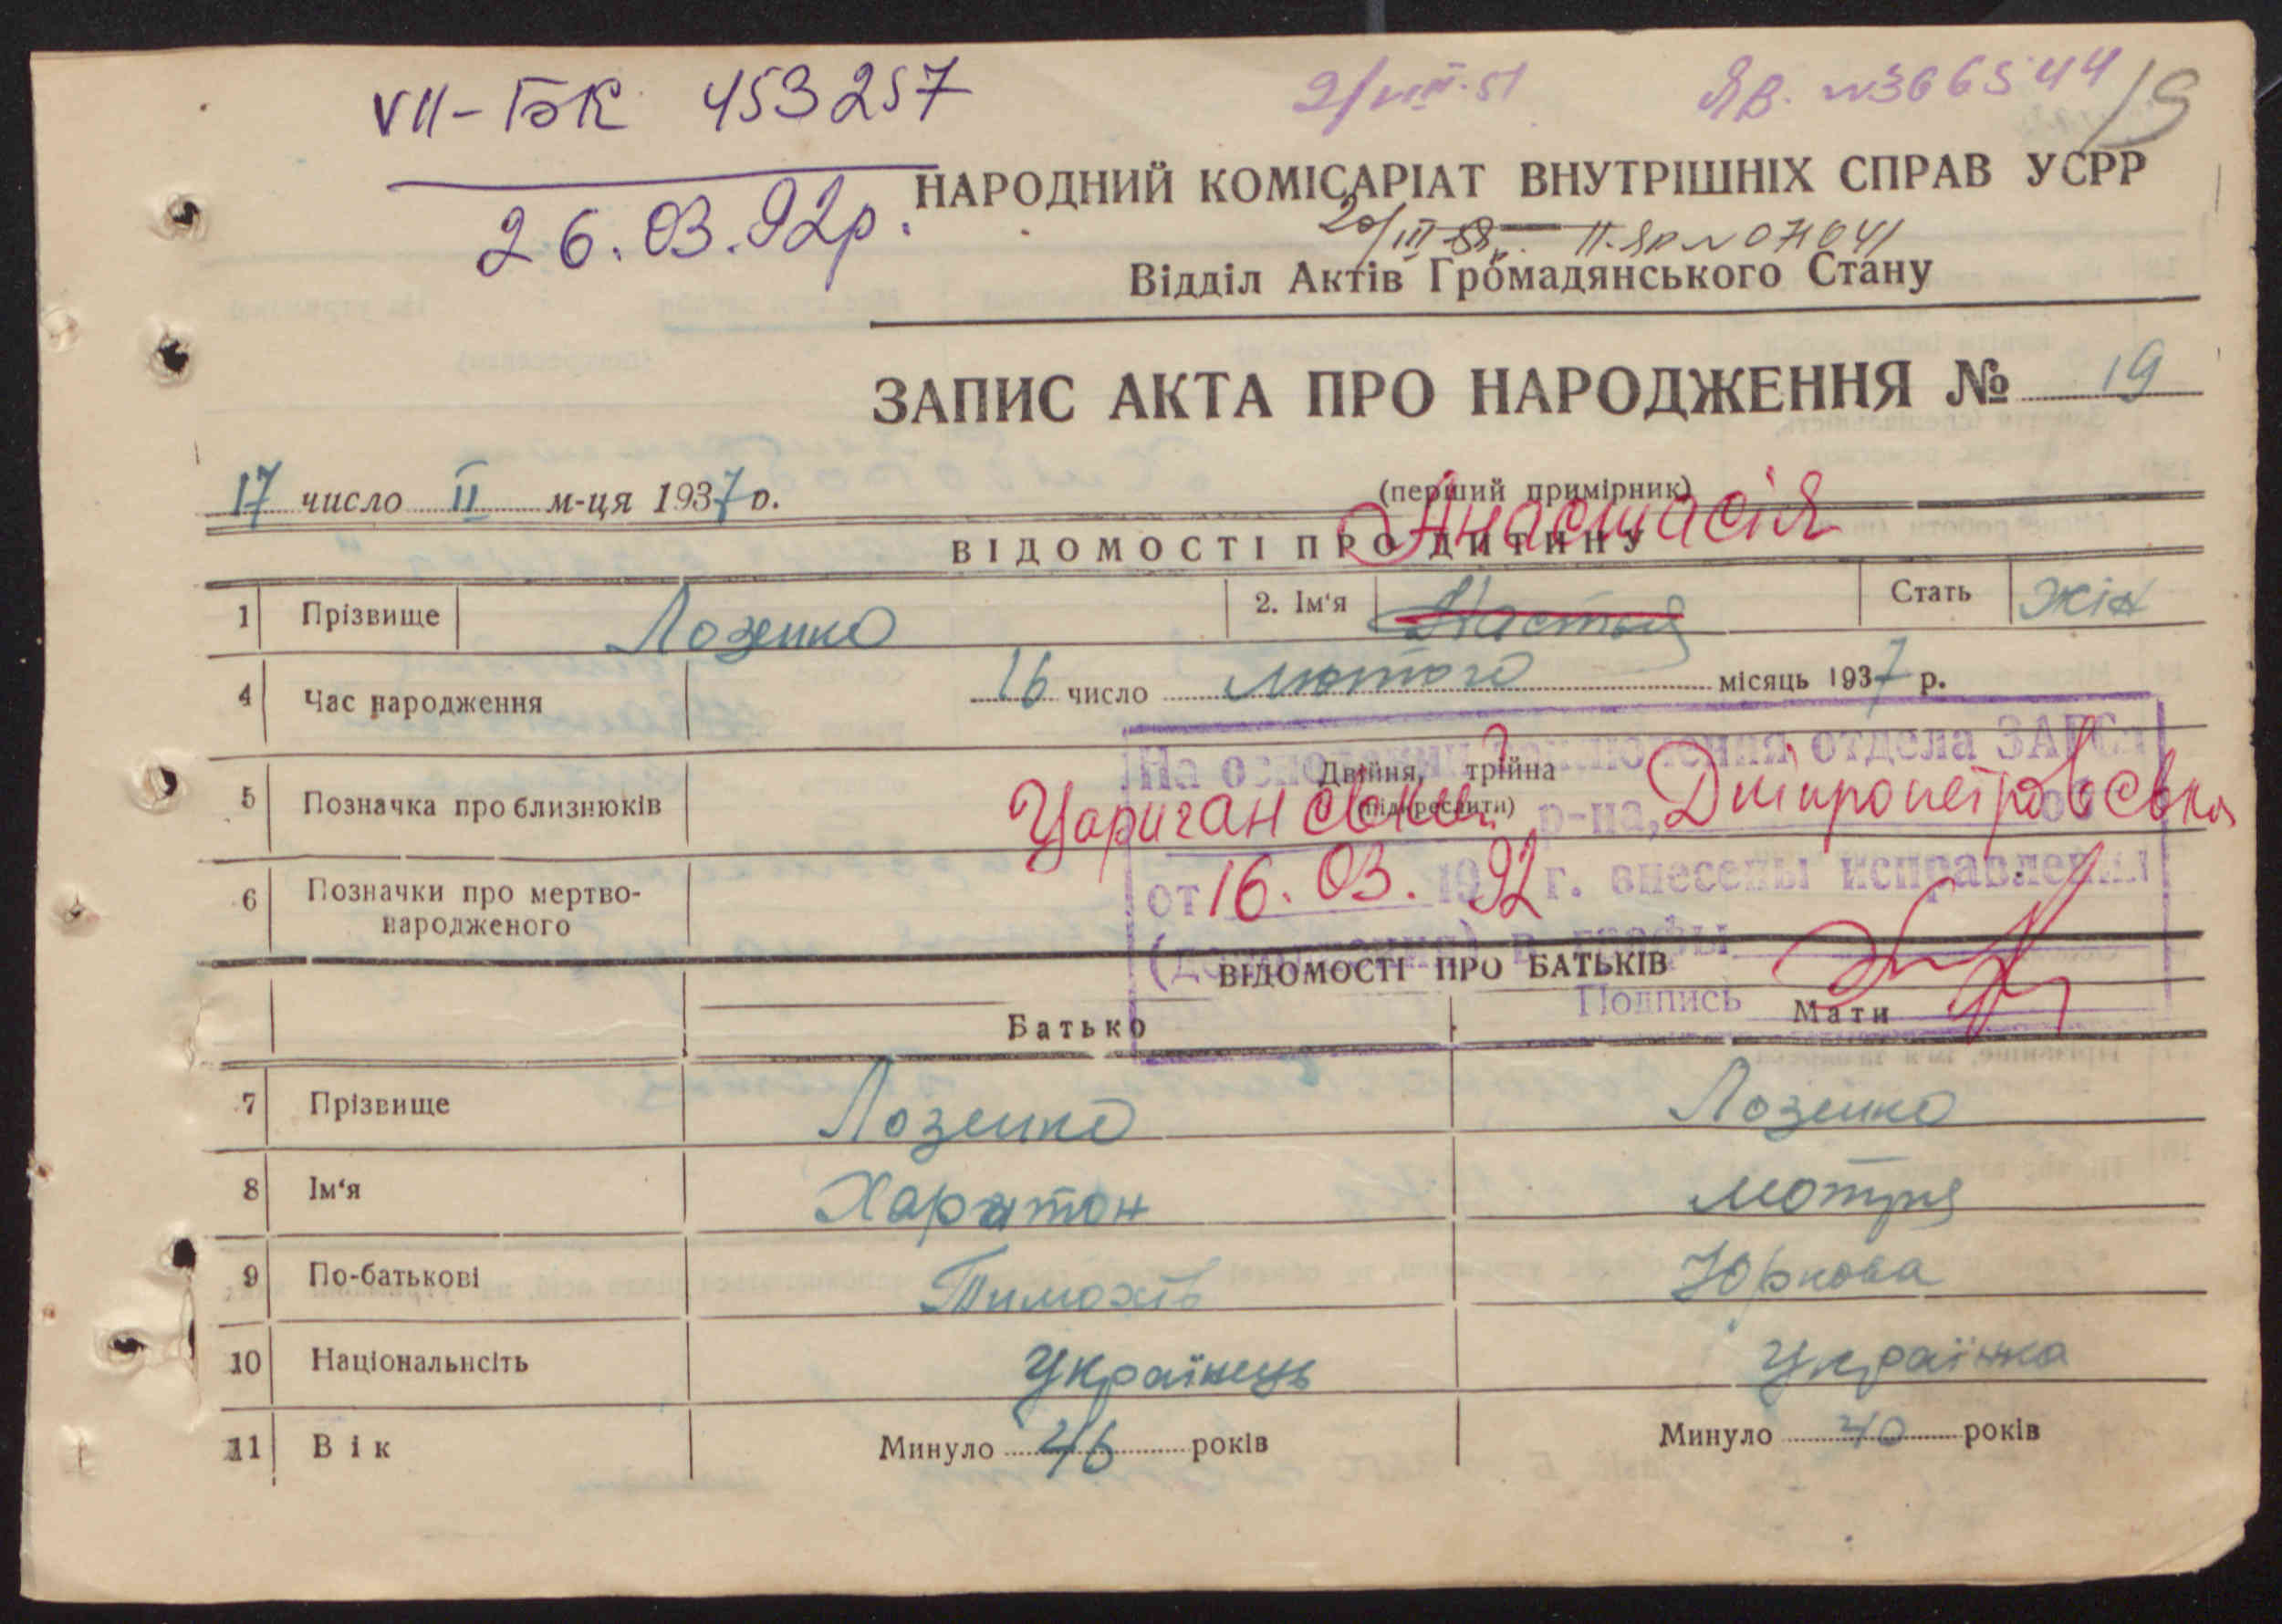 VII-БК 453257
26.03.92р.
2/VIII-51
ЯВ. №366544
19
НАРОДНИЙ КОМІСАРІАТ ВНУТРІШНІХ СПРАВ УСРР
20/III-58р. II-ЯР №071041
Відділ Актів Громадянського Стану
ЗАПИС АКТА ПРО НАРОДЖЕННЯ № 19
17 число II м-ця 1937 р.
(перший примірник)
Анастасія
ВІДОМОСТІ ПРО ДИТИНУ
1 Прізвище Лозенко 2. Ім'я Настья Стать жін
4 Час народження 16 число лютого місяць 1937 р.
5 Позначка про близнюків Двійня, трійна
(підкреслити)
На основании заключения отдела ЗАГСа
Царичанський р-на, Дніпропетровська об
от 16.03. 1992 г. внесены исправления
(дополнения) в графы
Подпись
6 Позначки про мертво-
народженого
ВІДОМОСТІ ПРО БАТЬКІВ
Батько Мати
7 Прізвище Лозенко Лозенко
8 Ім'я Харатон Мотря
9 По-батькові Тимохів Юркова
10 Національнсіть Українець Українка
11 Вік Минуло 46 років Минуло 40 років